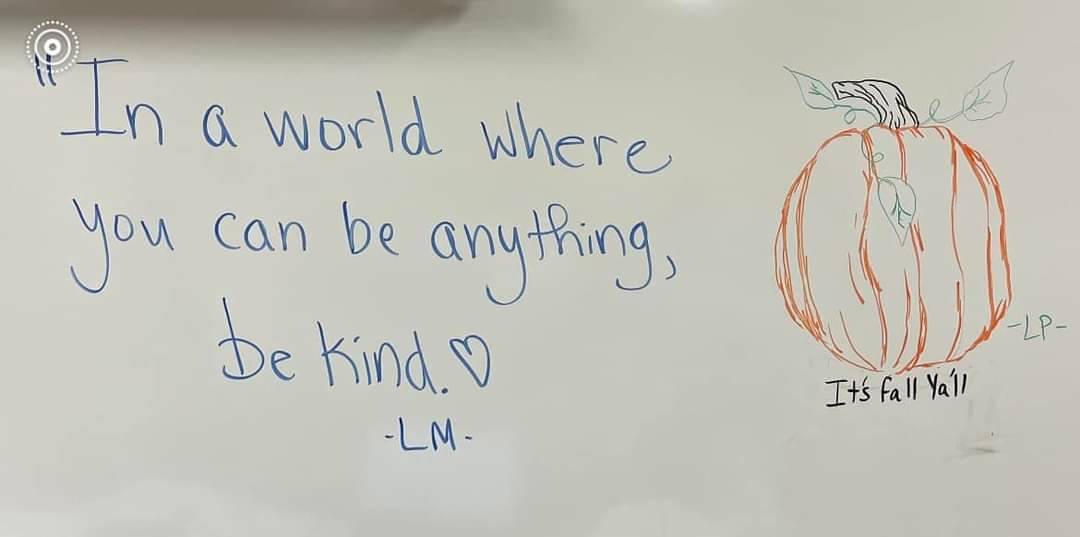 "In a world where
you can be anything,
be kind. ♡
-LM-
-LP-
It's fall Ya'll